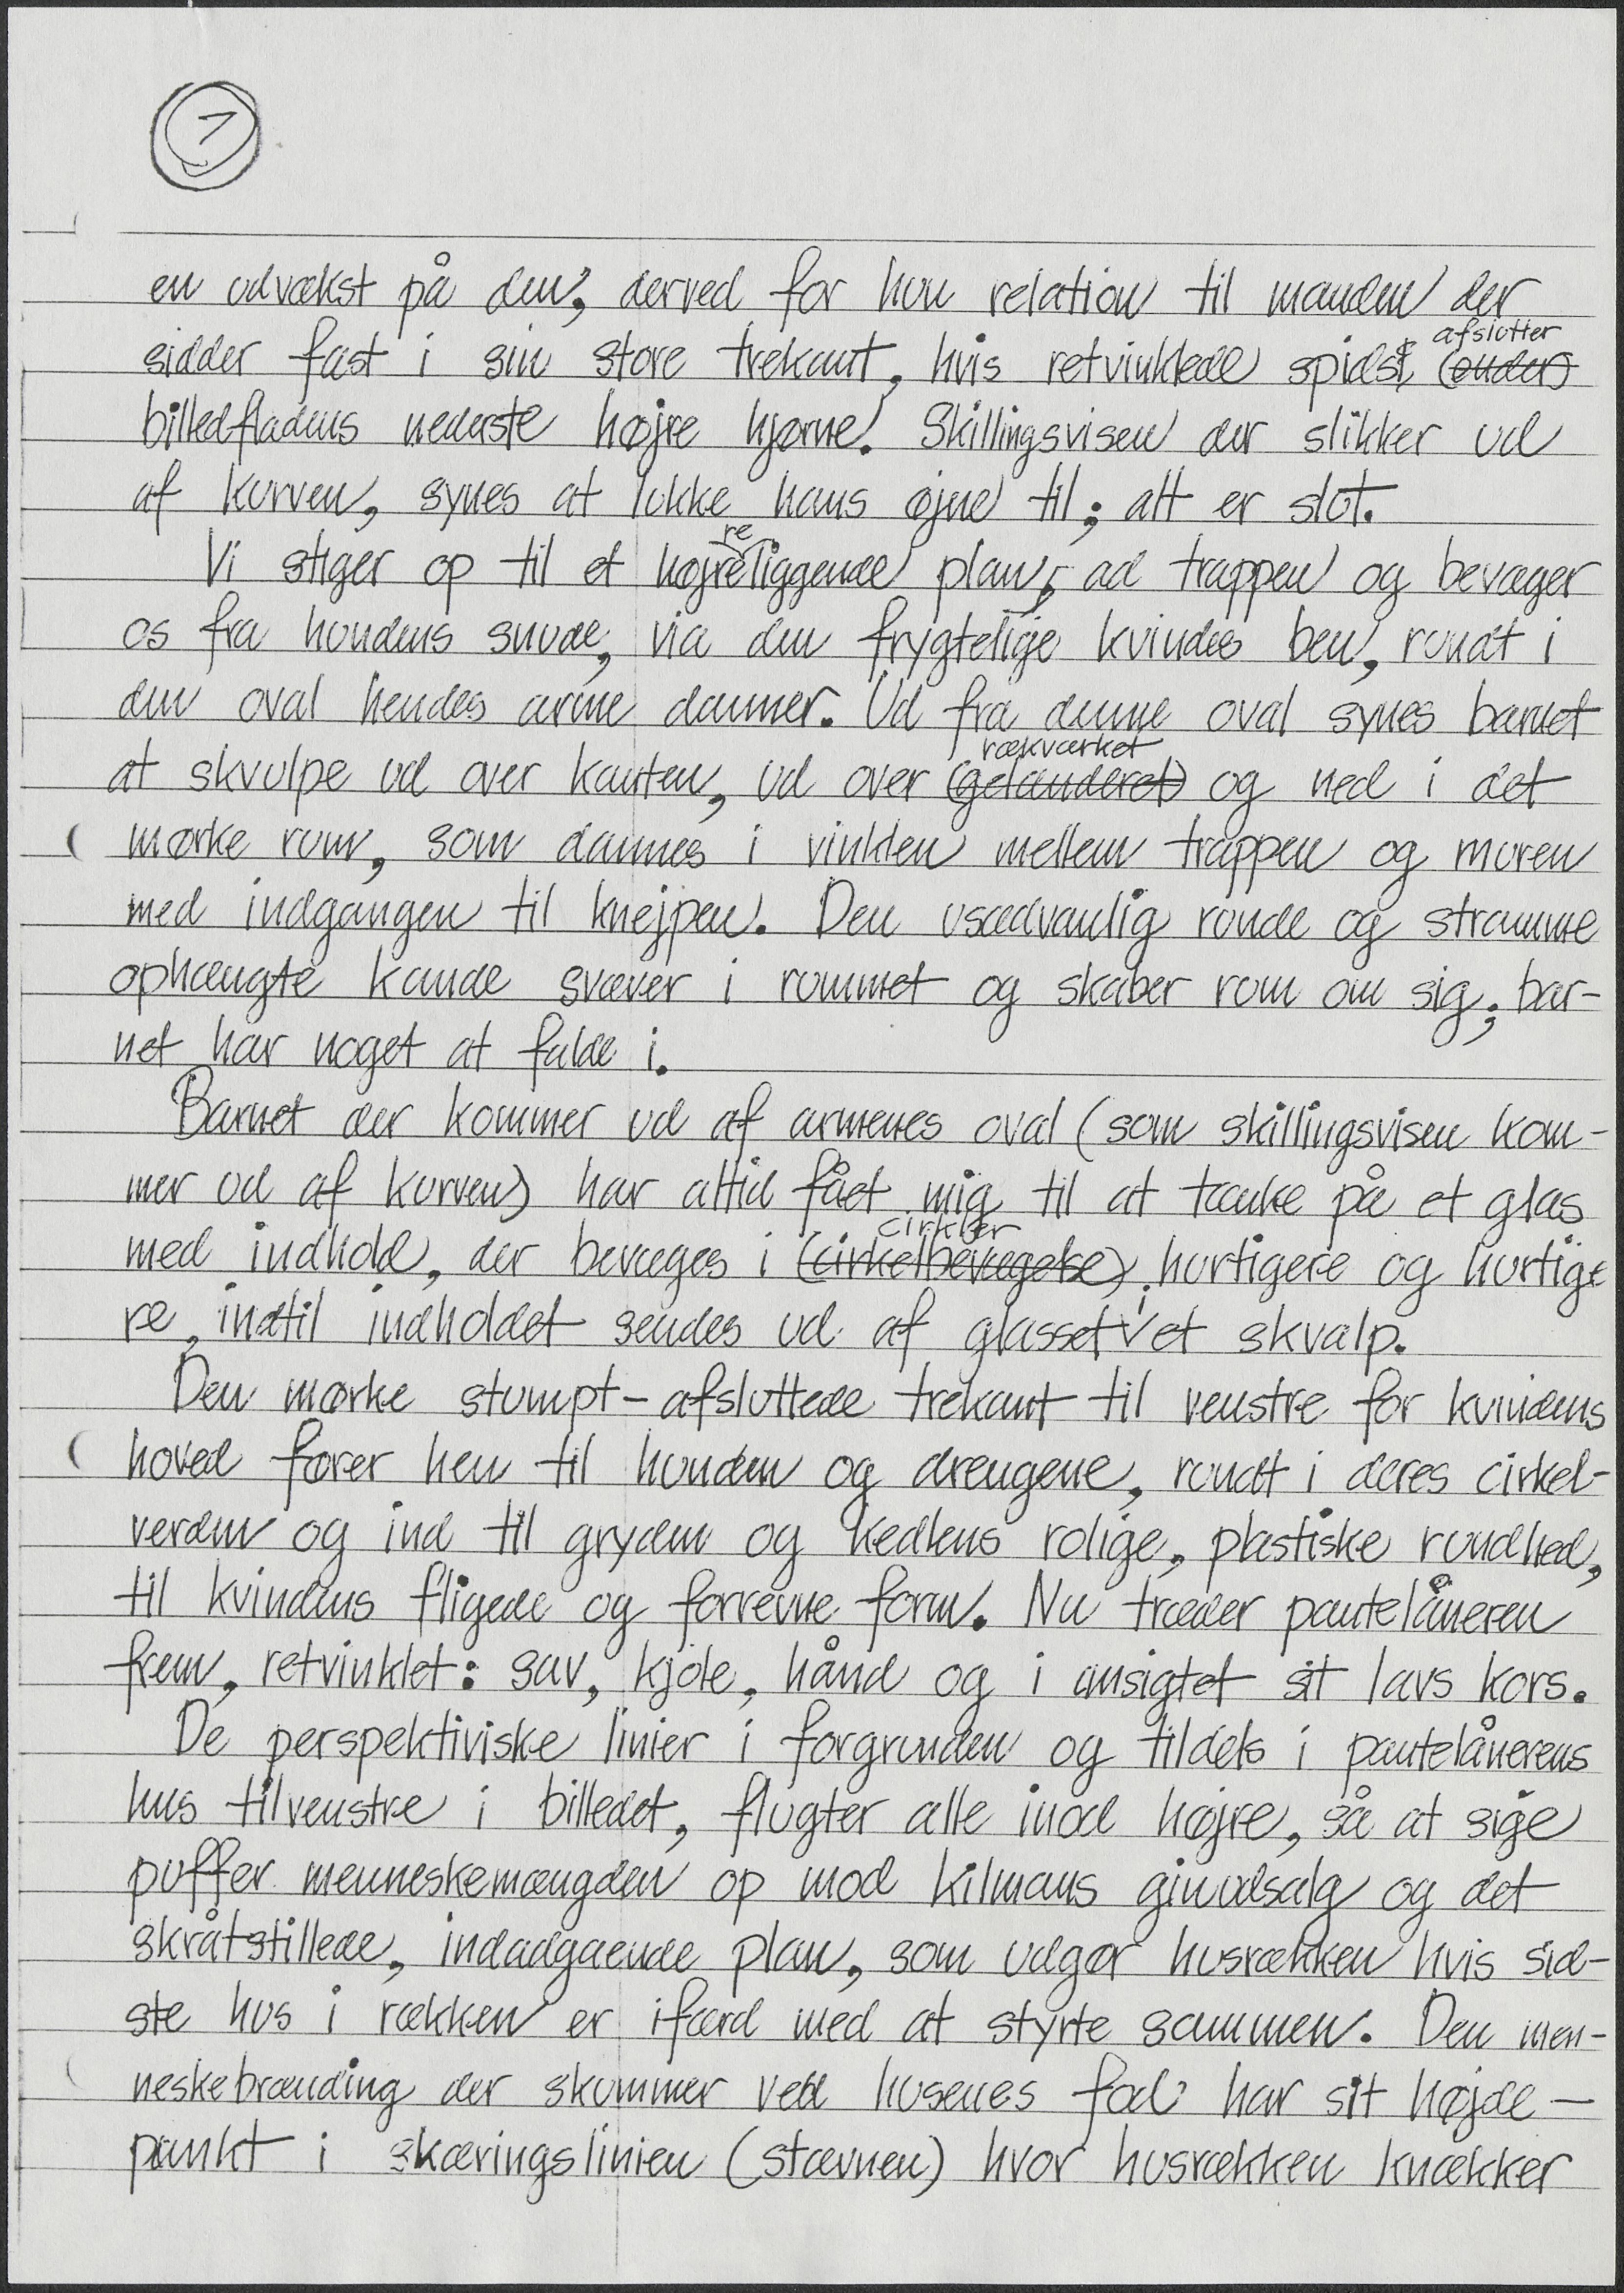 1
en udvækst på den, derved for hun relation til manden der
sidder fast i sin store trekant, hvis retvinklede spids (ender) afslutter
billedfladens nederste højre hjørne. Skillingsvisen der slikker ud
af kurven, synes at lukke hans øjne til; alt er slut.
Vi stiger op til et højreliggende plan, ad trappen og bevæger
os fra hundens snude, via den frygtelige kvindes ben, rundt i
den oval hendes arme danner. Ud fra denne oval synes barnet
at skvulpe ud over kanten, ud over (gelænderet) rækværket og ned i det
mørke rum, som dannes i vinklen mellem trappen og muren
med indgangen til knejpen. Den usædvanlig runde og stramme
ophængte kande svæver i rummet og skaber rum om sig; bar-
net har noget at falde i.
Barnet der kommer ud af armenes oval (som skillingsvisen kom-
mer ud af kurven) har altid fået mig til at tænke på et glas
med indhold, der bevæges i (cirkelbevægelse) cirkler hurtigere og hurtige
re, indtil indholdet sendes ud af glasset i et skvalp.
Den mørke stumpt-afsluttede trekant til venstre for kvindens
hoved fører hen til hunden og drengene, rundt i deres cirkel-
verden og ind til gryden og kedlens rolige, plastiske rundhed,
til kvindens fligede og forrevne form. Nu træder pantelåneren
frem, retvinklet: sav, kjole, hånd og i ansigtet sit lavs kors.
De perspektiviske linier i forgrunden og tildels i pantelånerens
hus tilvenstre i billedet, flugter alle imod højre, så at sige
puffer menneskemængden op mod kilmans ginudsalg og det
skråtstillede, indadgaende plan, som udgør husrækken hvis sid-
ste hus i rækken er ifærd med at styrte sammen. Den men-
neskebrænding der skummer ved husenes fod har sit højde-
punkt i skæringslinien (stævnen) hvor husrækken knækker